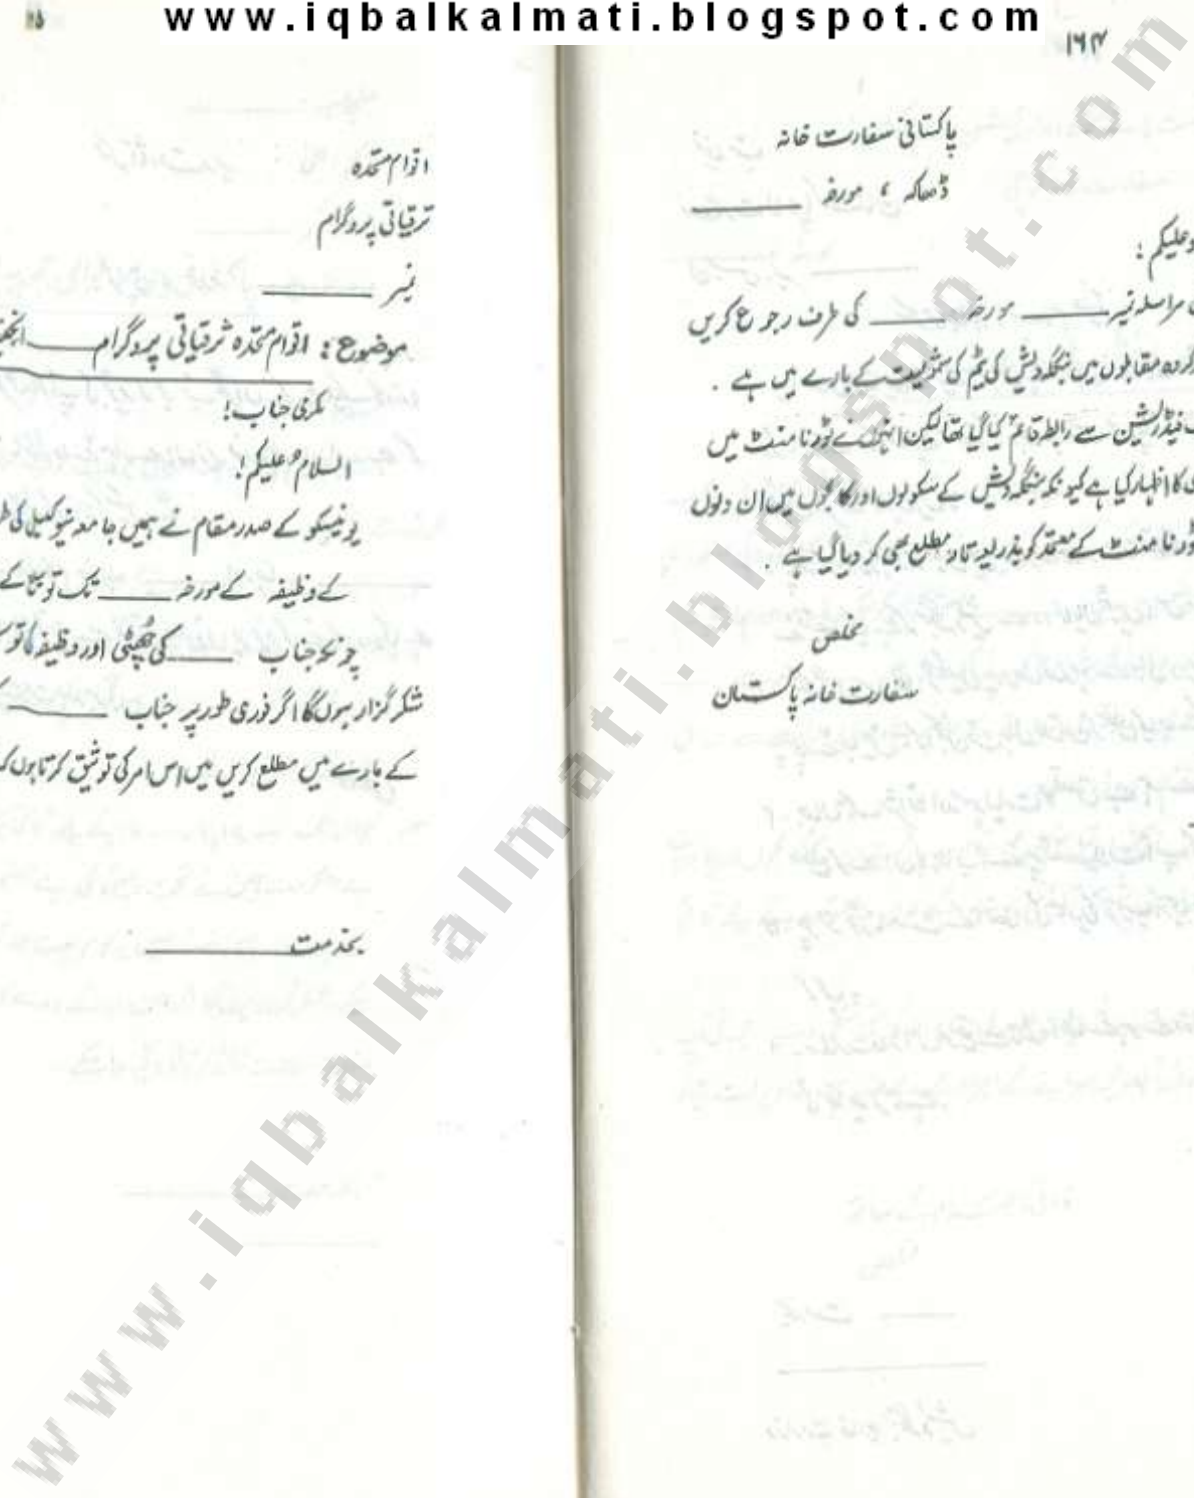 www.iqbalkalmati.blogspot.com
۱۶۴
پاکستانی سفارت خانہ
ڈھاکہ ، مورخہ ______
وعلیکم :
مراسلہ نمبر ______ مورخہ ______ کی طرف رجوع کریں
کردہ مقابلوں میں بنگلہ دیش کی ٹیم کی شمولیت کے بارے میں ہے ۔
فیڈریشن سے رابطہ قائم کیا گیا تھا لیکن انہوں نے ٹورنامنٹ میں
کا اظہار کیا ہے کیونکہ بنگلہ دیش کے سکولوں اور کالجوں میں ان دنوں
ٹورنامنٹ کے معتمد کو بذریعہ تار مطلع بھی کر دیا گیا ہے ۔
مخلص
سفارت خانہ پاکستان
اقوام متحدہ
ترقیاتی پروگرام
نمبر ______
موضوع : اقوام متحدہ ترقیاتی پروگرام ______
مکرمی جناب !
السلام علیکم !
یونیسکو کے صدر مقام نے ہمیں جامعہ نیو کیسل کی
کے وظیفہ کے مورخہ ______ تک توسیع کے
چونکہ جناب ______ کی چھٹی اور وظیفہ کا
شکر گزار ہوں گا اگر فوری طور پر جناب ______
کے بارے میں مطلع کریں میں اس امر کی توثیق کرتا ہوں
بخدمت ______
www.iqbalkalmati.blogspot.com